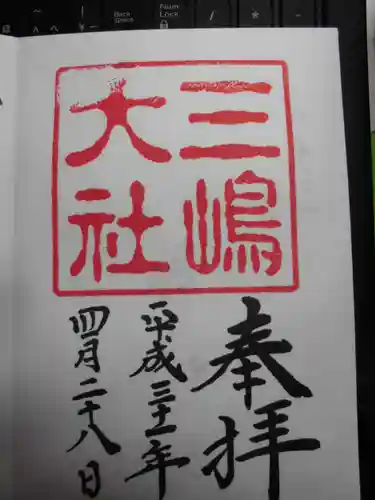 三嶋
大社
奉拝
平成三十一年
四月二十八日
Back
Space
Num
Lock
/
*
-